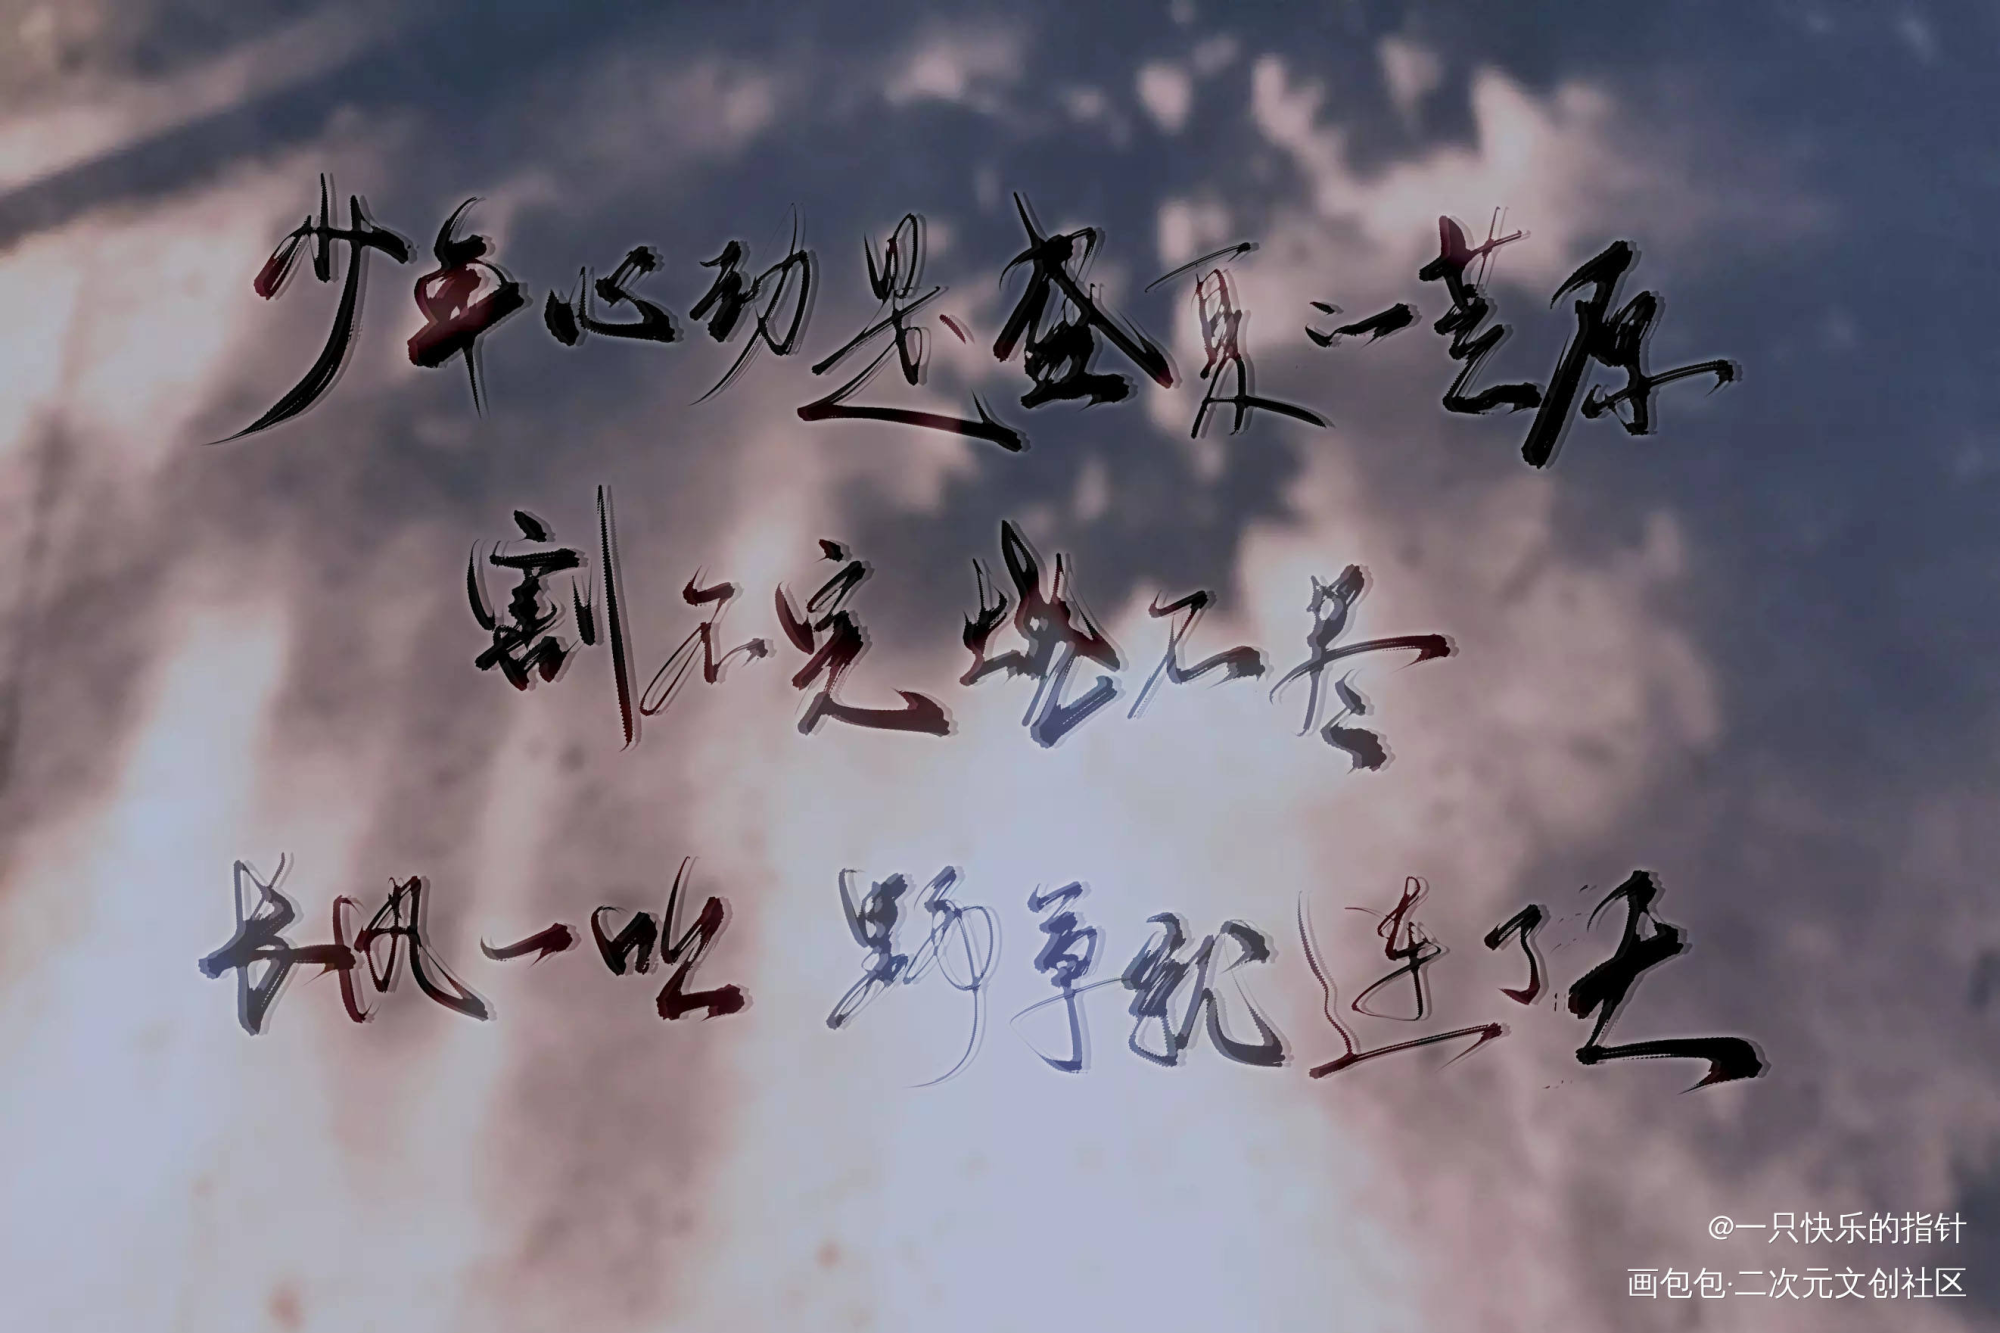 少年心动是盛夏的荒原
割不完烧不尽
长风一吹 野草就连了天
@一只快乐的指针
画包包·二次元文创社区